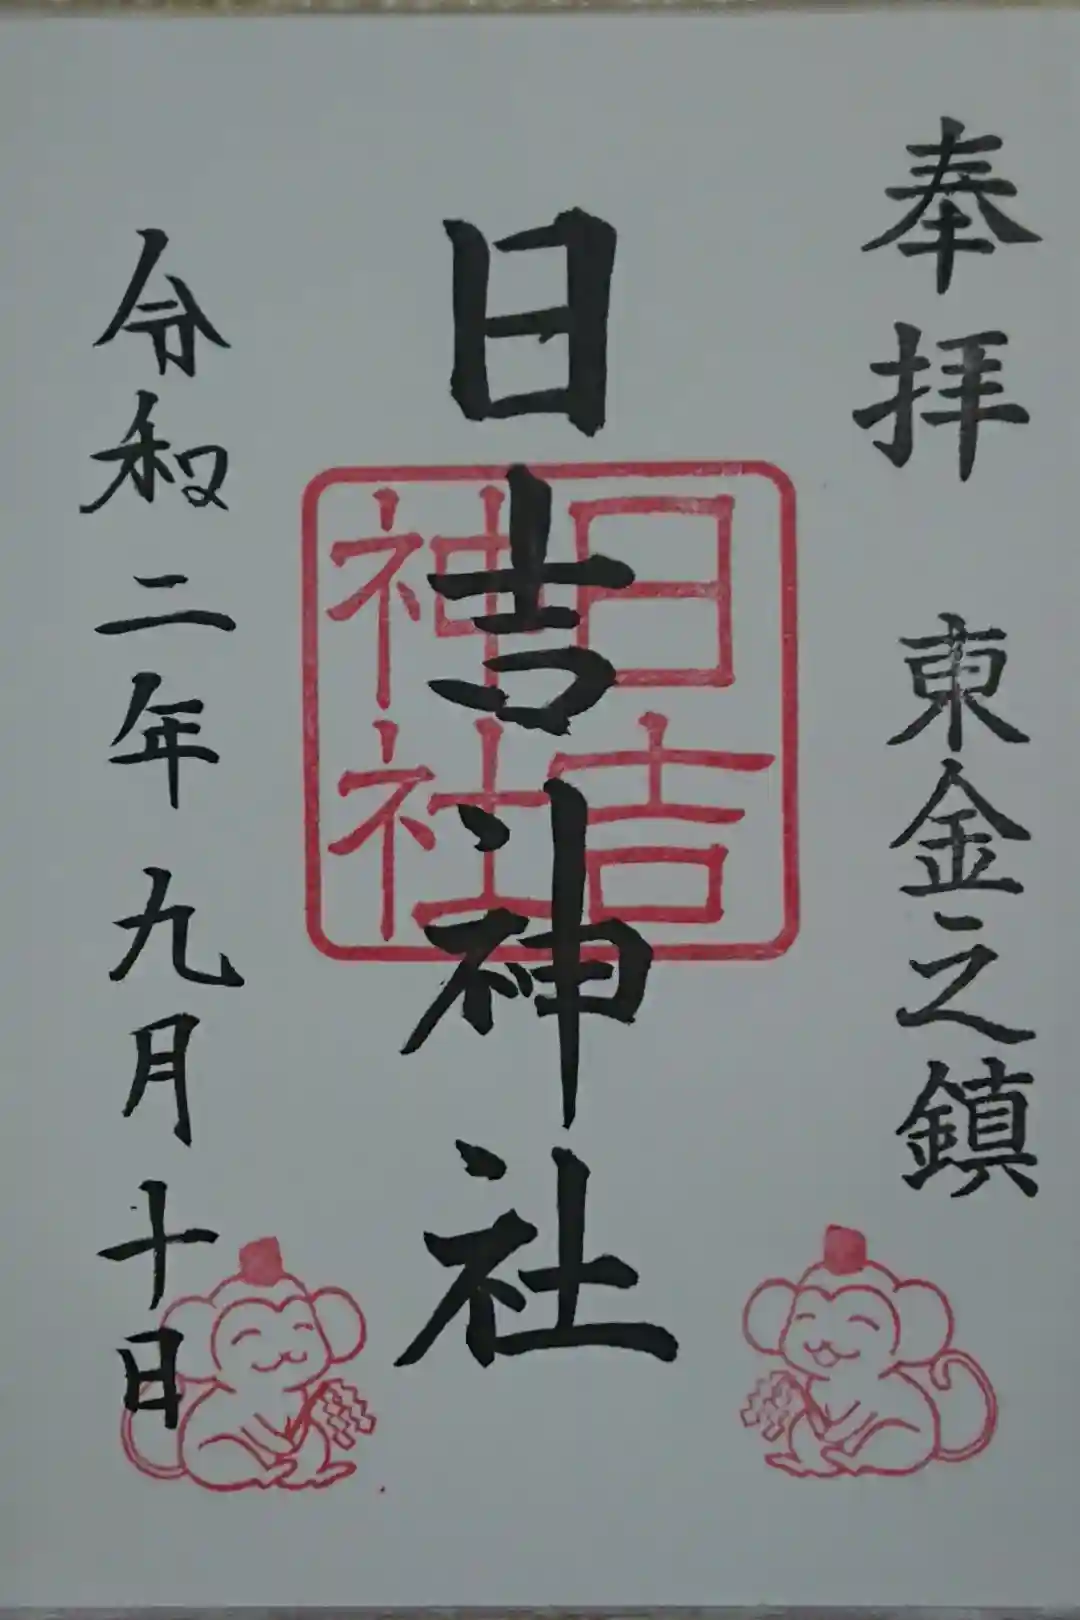 奉拝　東金之鎮
日吉神社
日吉
神社
令和二年九月十日